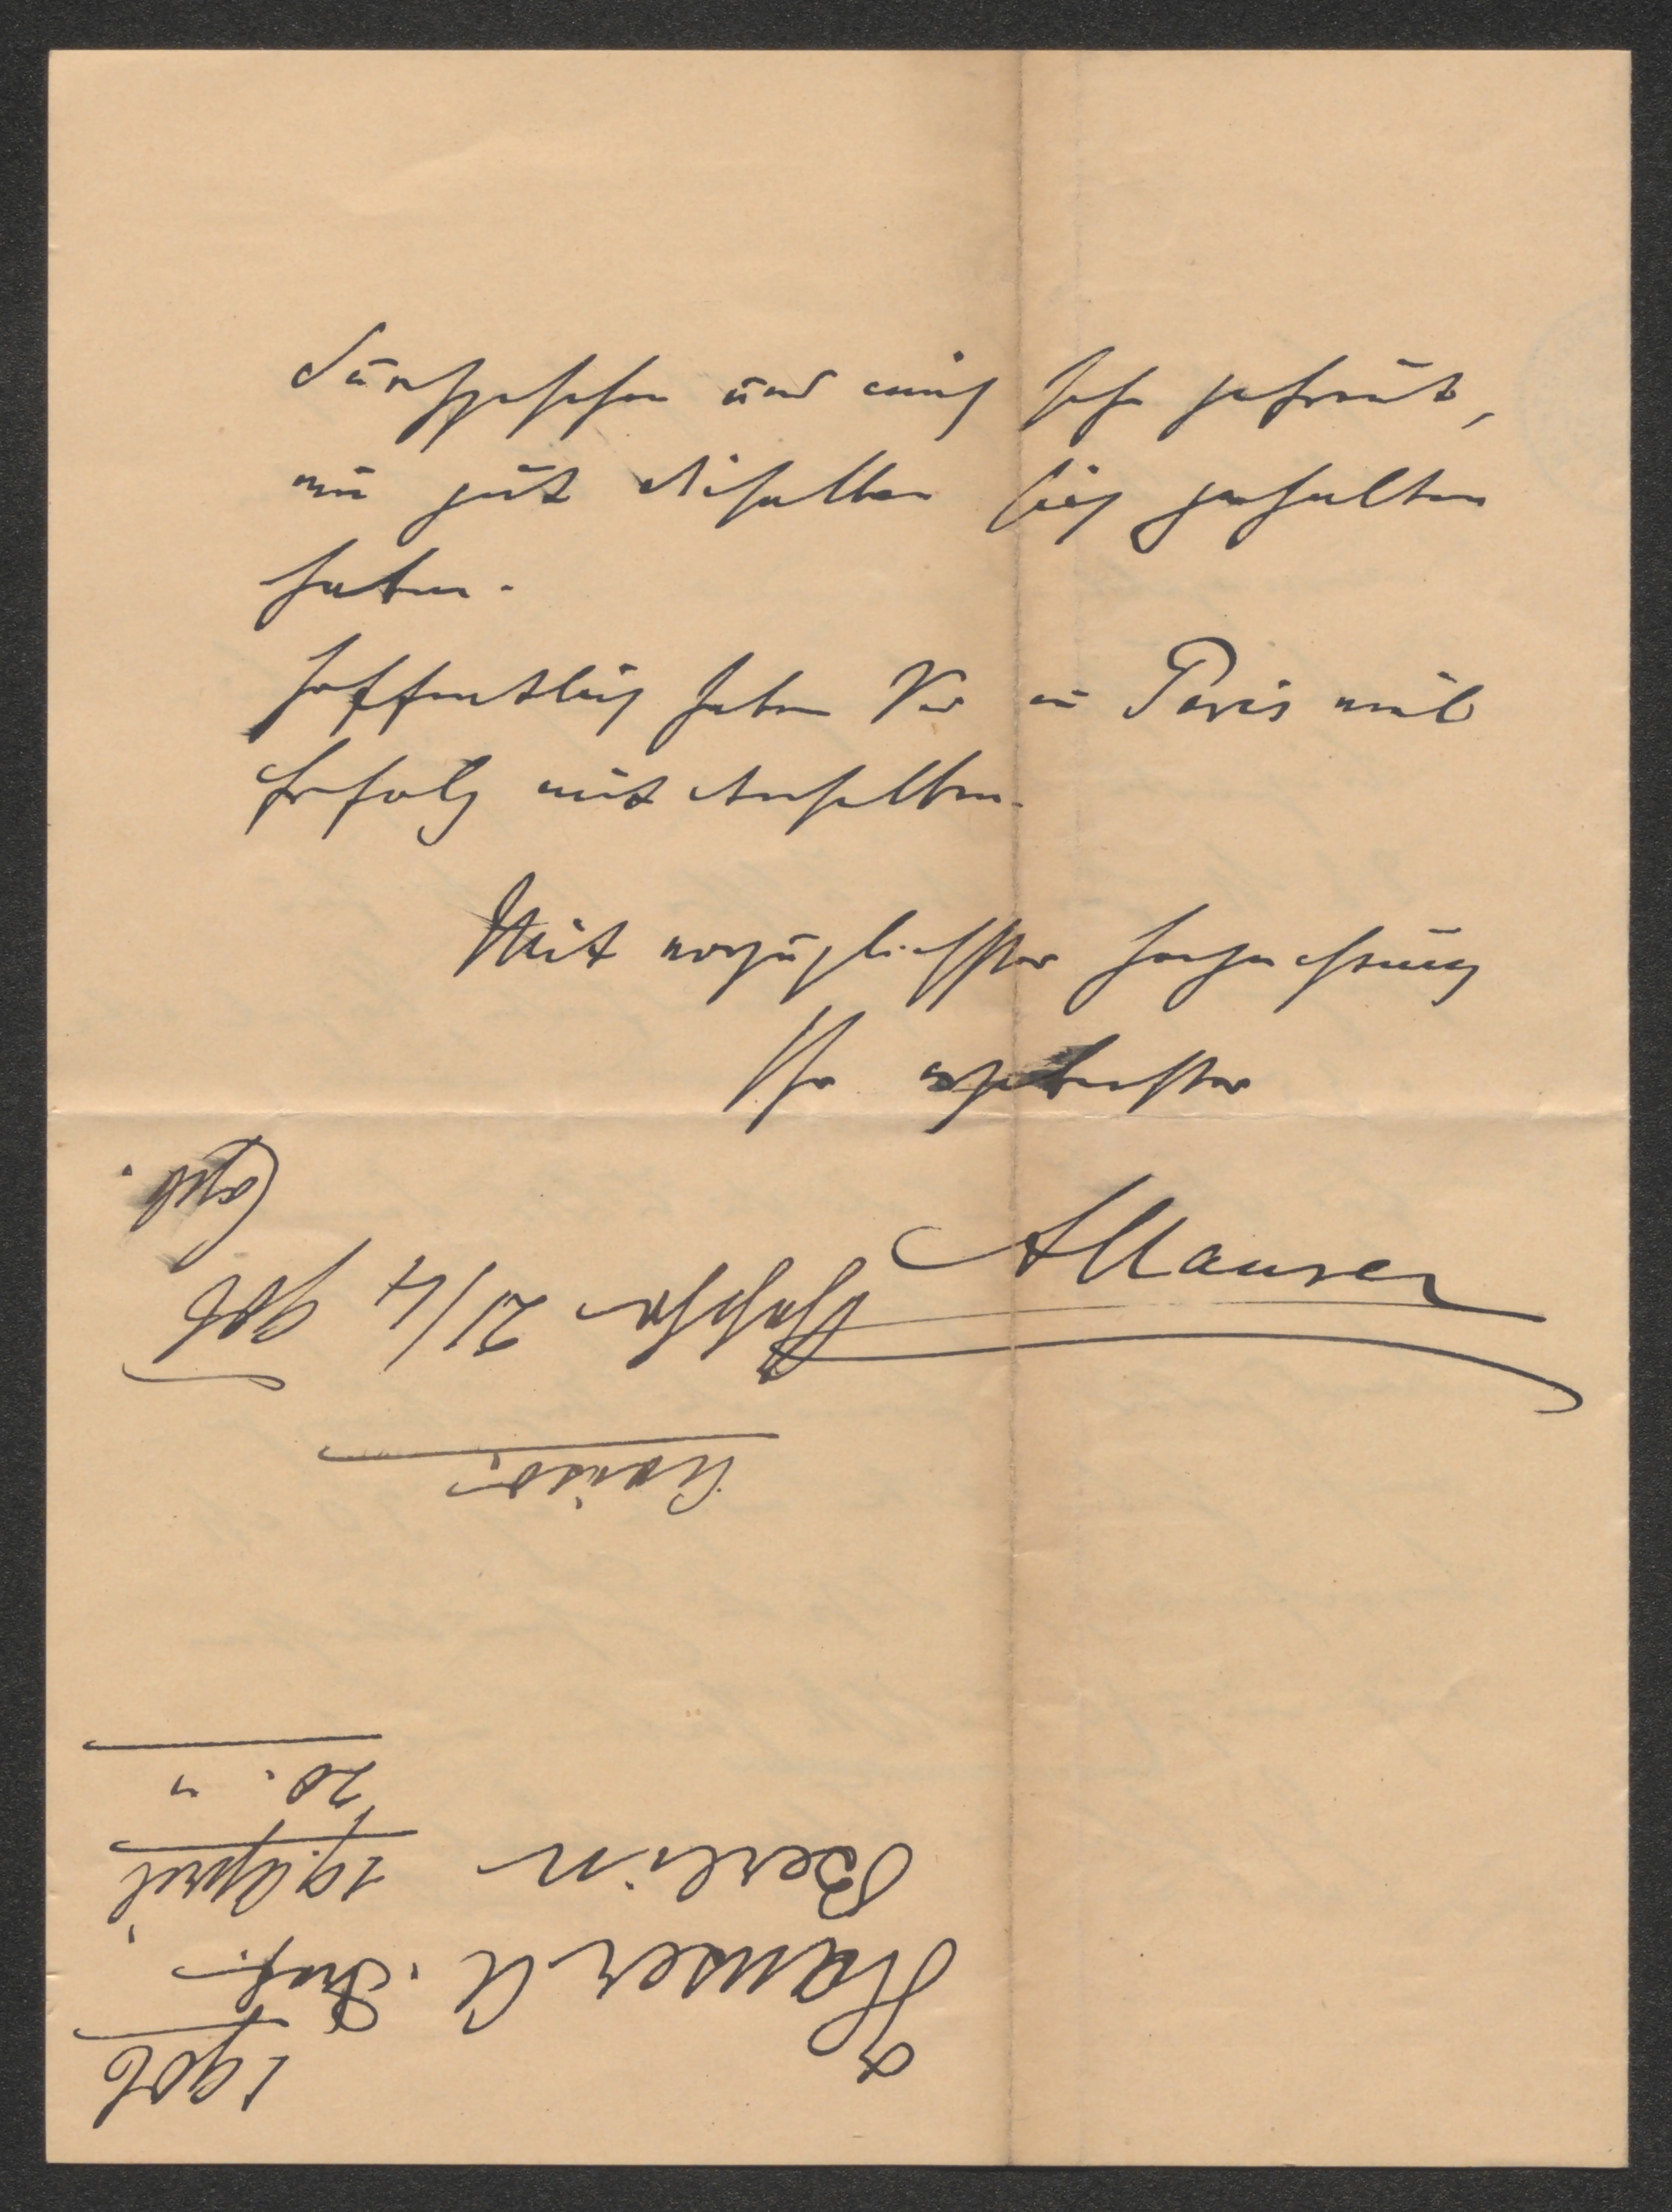 durchgesehen und mich sehr gefreut,
wie gut dieselben sich gehalten
haben.
Hoffentlich haben Sie in Paris viel
Erfolg mit denselben.
Mit vorzüglichster Hochachtung
Ihr ergebenster
AHauser
1906
Hauser A. Prof.
Berlin
19. April
20. "
Hauser
21/4 906
Cop.